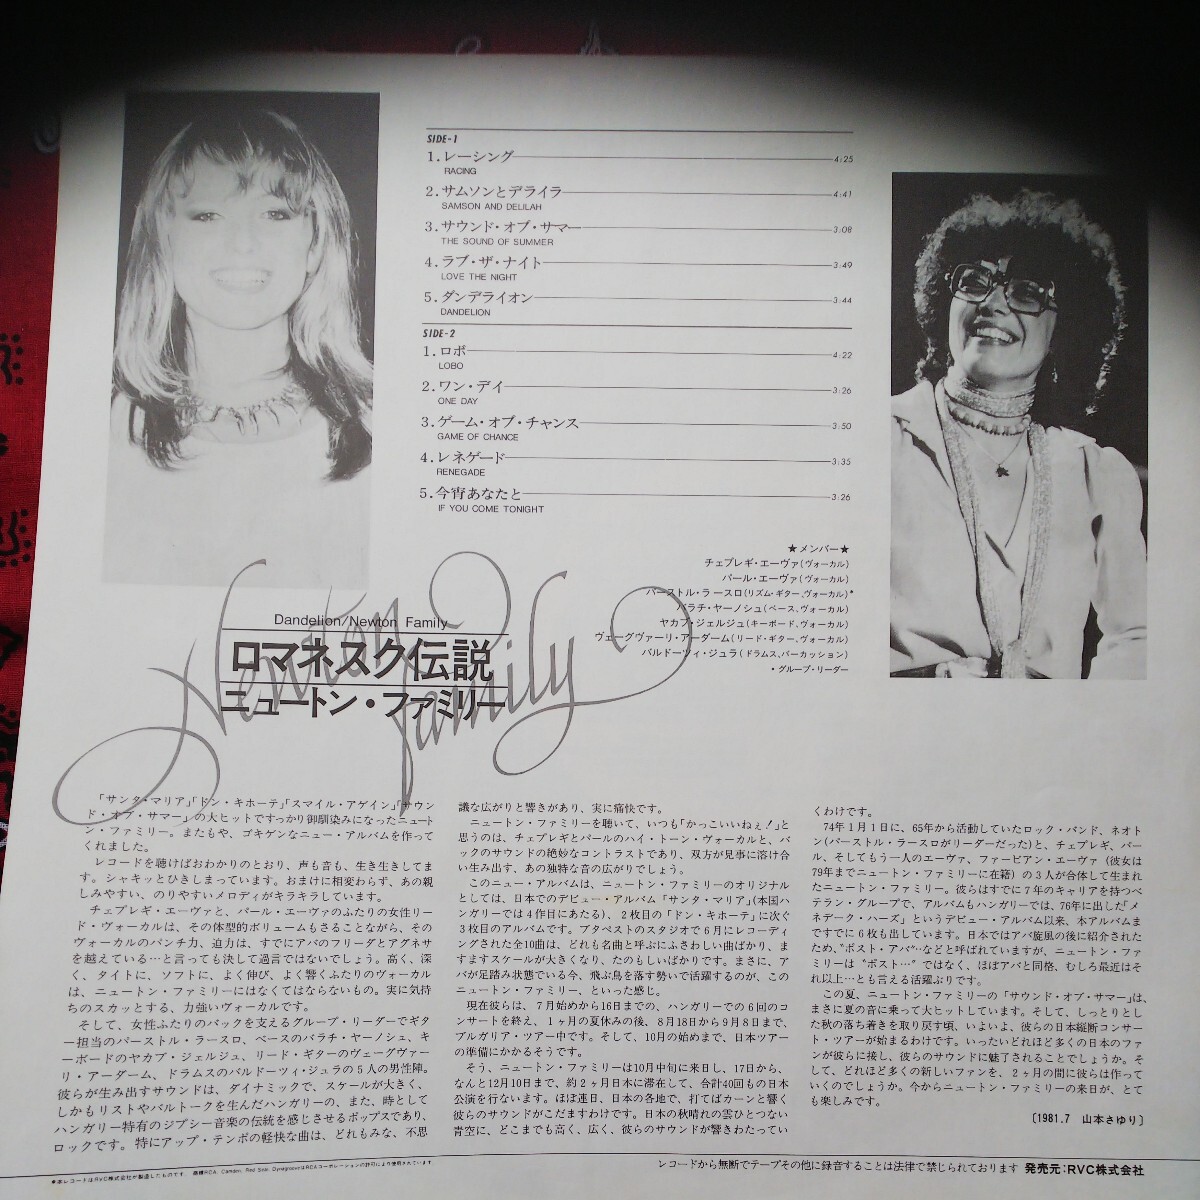 SIDE-1
1.レーシング 4:25
RACING
2.サムソンとデライラ 4:41
SAMSON AND DELILAH
3.サウンド・オブ・サマー 3:08
THE SOUND OF SUMMER
4.ラブ・ザ・ナイト 3:49
LOVE THE NIGHT
5.ダンデライオン 3:44
DANDELION
SIDE-2
1.ロボ 4:22
LOBO
2.ワン・デイ 3:26
ONE DAY
3.ゲーム・オブ・チャンス 3:50
GAME OF CHANCE
4.レネゲード 3:35
RENEGADE
5.今宵あなたと 3:26
IF YOU COME TONIGHT
★メンバー★
チェプレギ・エーヴァ(ヴォーカル)
パール・エーヴァ(ヴォーカル)
パーストル・ラースロ(リズム・ギター、ヴォーカル)*
バラチ・ヤーノシュ(ベース、ヴォーカル)
ヤカブ・ジェルジュ(キーボード、ヴォーカル)
ヴェーグヴァーリ・アーダーム(リード・ギター、ヴォーカル)
バルドーツィ・ジュラ(ドラムス、パーカッション)
*グループ・リーダー
Newton Family
Dandelion/Newton Family
ロマネスク伝説
ニュートン・ファミリー
「サンタ・マリア」「ドン・キホーテ」「スマイル・アゲイン」「サウン
ド・オブ・サマー」の大ヒットですっかり御馴染みになったニュート
ン・ファミリー。またもや、ゴキゲンなニュー・アルバムを作って
くれました。
レコードを聴けばおわかりのとおり、声も音も、生き生きしてま
す。シャキッとひきしまっています。おまけに相変わらず、あの親
しみやすい、のりやすいメロディがキラキラしています。
チェプレギ・エーヴァと、パール・エーヴァのふたりの女性リー
ド・ヴォーカルは、その体型的ボリュームもさることながら、その
ヴォーカルのパンチ力、迫力は、すでにアバのフリーダとアグネサ
を越えている…と言っても決して過言ではないでしょう。高く、深
く、タイトに、ソフトに、よく伸び、よく響くふたりのヴォーカル
は、ニュートン・ファミリーにはなくてはならないもの。実に気持
ちのスカッとする、力強いヴォーカルです。
そして、女性ふたりのバックを支えるグループ・リーダーでギタ
ー担当のパーストル・ラースロ、ベースのバラチ・ヤーノシュ、キ
ーボードのヤカブ・ジェルジュ、リード・ギターのヴェーグヴァー
リ・アーダーム、ドラムスのバルドーツィ・ジュラの5人の男性陣。
彼らが生み出すサウンドは、ダイナミックで、スケールが大きく、
しかもリストやバルトークを生んだハンガリーの、また、時として
ハンガリー特有のジプシー音楽の伝統を感じさせるポップスであり、
ロックです。特にアップ・テンポの軽快な曲は、どれもみな、不思
議な広がりと響きがあり、実に痛快です。
ニュートン・ファミリーを聴いて、いつも「かっこいいねぇ!」と
思うのは、チェプレギとパールのハイ・トーン・ヴォーカルと、バ
ックのサウンドの絶妙なコントラストであり、双方が見事に溶け合
い生み出す、あの独特な音の広がりでしょう。
このニュー・アルバムは、ニュートン・ファミリーのオリジナル
としては、日本でのデビュー・アルバム「サンタ・マリア」(本国ハ
ンガリーでは4作目にあたる)、2枚目の「ドン・キホーテ」に次ぐ
3枚目のアルバムです。ブタペストのスタジオで6月にレコーディ
ングされた全10曲は、どれも名曲と呼ぶにふさわしい曲ばかり、ま
すますスケールが大きくなり、たのもしいばかりです。まさに、ア
バが足踏み状態でいる今、飛ぶ鳥を落す勢いで活躍するのが、この
ニュートン・ファミリー、といった感じ。
現在彼らは、7月始めから16日までの、ハンガリーでの6回のコ
ンサートを終え、1ヶ月の夏休みの後、8月18日から9月8日まで、
ブルガリア・ツアー中です。そして、10月の始めまで、日本ツアー
の準備にかかるそうです。
そう、ニュートン・ファミリーは10月中旬に来日し、17日から、
なんと12月10日まで、約2ヶ月日本に滞在して、合計40回もの日本
公演を行ないます。ほぼ連日、日本の各地で、打てばカーンと響く
彼らのサウンドがこだますわけです。日本の秋晴れの雲ひとつない
青空に、どこまでも高く、広く、彼らのサウンドが響きわたってい
くわけです。
74年1月1日に、65年から活動していたロック・バンド、ネオト
ン(パーストル・ラースロがリーダーだった)と、チェプレギ、パー
ル、そしてもう一人のエーヴァ、ファービアン・エーヴァ(彼女は
79年までニュートン・ファミリーに在籍)の3人が合体して生まれ
たニュートン・ファミリー。彼らはすでに7年のキャリアを持つベ
テラン・グループで、アルバムもハンガリーでは、76年に出した「メ
ネデーク・ハーズ」というデビュー・アルバム以来、本アルバムま
ですでに6枚も出しています。日本ではアバ旋風の後に紹介された
ため、"ポスト・アバ"…などと呼ばれていますが、ニュートン・ファ
ミリーは"ポスト…"ではなく、ほぼアバと同格、むしろ最近はそ
れ以上…とも言える活躍ぶりです。
この夏、ニュートン・ファミリーの「サウンド・オブ・サマー」は、
まさに夏の音に乗って大ヒットしています。そして、しっとりとし
た秋の落ち着きを取り戻す頃、いよいよ、彼らの日本縦断コンサー
ト・ツアーが始まるわけです。いったいどれほど多くの日本のファ
ンが彼らに接し、彼らのサウンドに魅了されることでしょうか。そ
して、どれほど多くの新しいファンを、2ヶ月の間に彼らは作って
いくのでしょうか。今からニュートン・ファミリーの来日が、とて
も楽しみです。
〔1981.7 山本さゆり〕
●本レコードはRVC株式会社が製造したものです 商標RCA, Camden, Red Seal, DynagrooveはRCAコーポレーションの許可により使用されています
レコードから無断でテープその他に録音することは法律で禁じられております 発売元:RVC株式会社